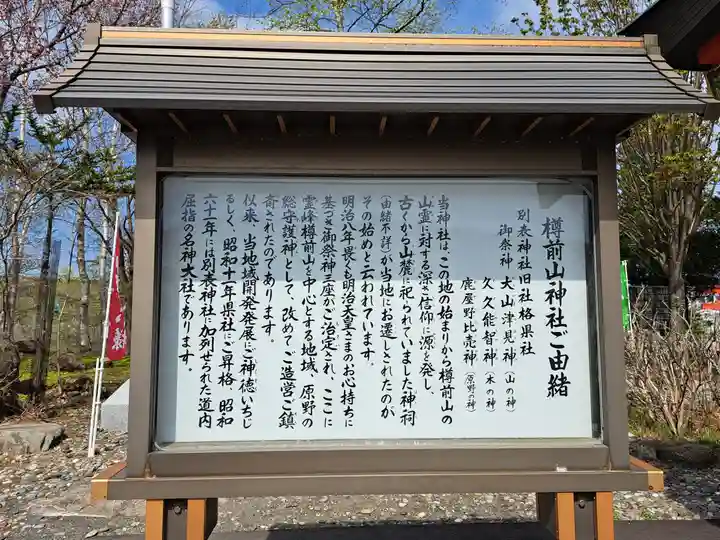 樽前山神社ご由緒
別表神社旧社格県社
御祭神 大山津見神(山の神)
久久能智神(木の神)
鹿屋野比売神(原野の神)
当神社は、この地の始まりから樽前山の
山霊に対する深き信仰に源を発し、
古くから山麓に祀られていました神祠
(由緒不詳)が当地にお遷しされたのが
その始めと云われています。
明治八年、畏くも明治天皇さまのお心持ちに
基づき御祭神三座がご治定され、ここに
霊峰樽前山を中心とする地域、原野の
総守護神として、改めてご造営ご鎮
斎されたのであります。
似来、当地域開発発展にご神徳いちじ
るしく、昭和十一年県社にご昇格、昭和
六十一年には別表神社に加列せられた道内
屈指の名神大社であります。